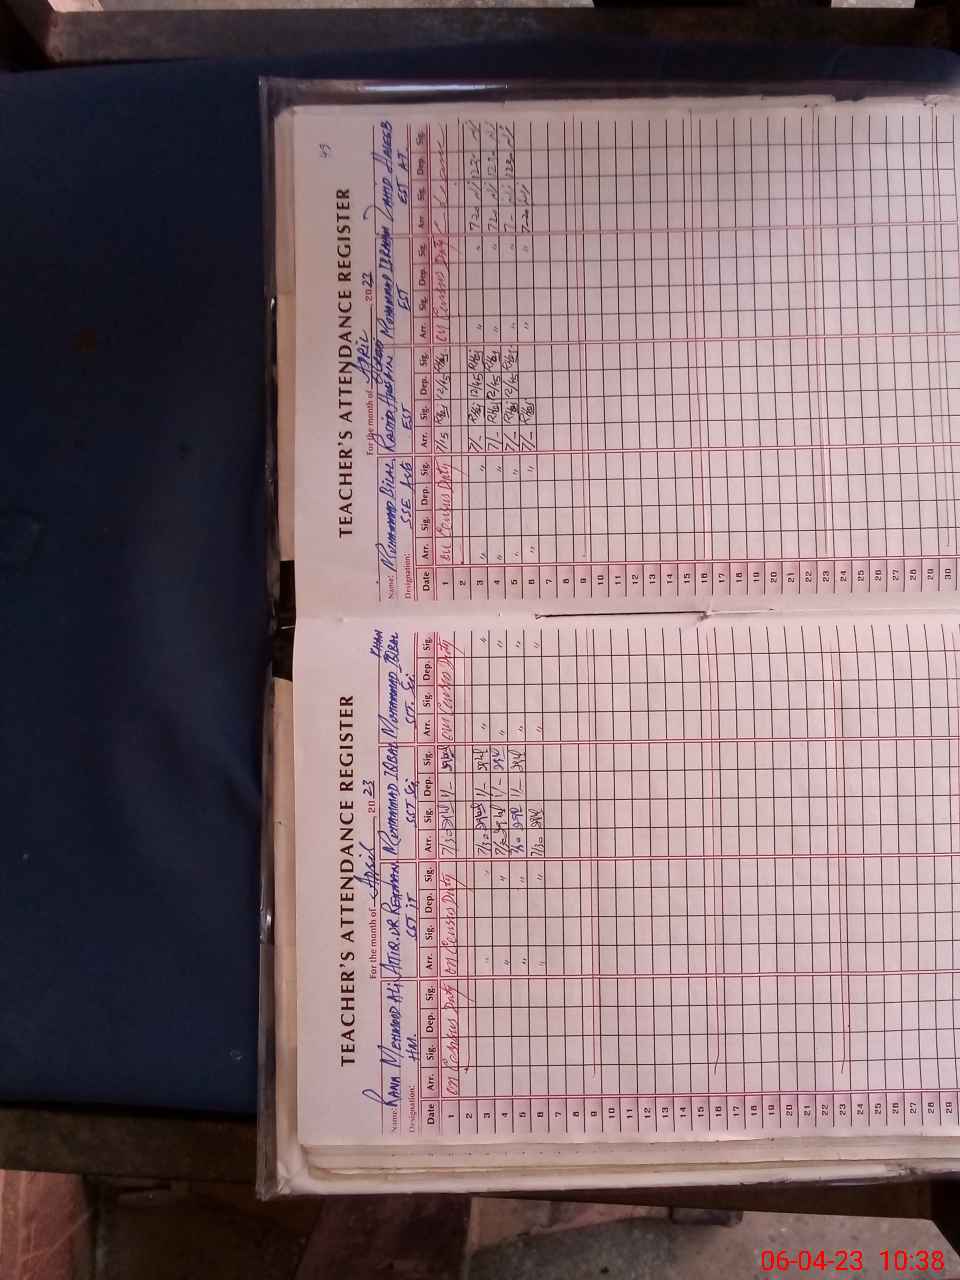 TEACHER'S ATTENDANCE REGISTER
For the month of April 2023
Name: RANA MEHMOOD ALI ATTIQ.UR.REHMAN MUHAMMAD IQBAL MUHAMMAD IQBAL KHAN
Designation: HM. SST IT SST Sci SST. Sci
Date Arr. Sig. Dep. Sig. Arr. Sig. Dep. Sig. Arr. Sig. Dep. Sig. Arr. Sig. Dep. Sig.
1 on Census Duty on Census Duty 7/30 1/- on Census Duty
2
3 " " 7/30 1/- " "
4 " " 1/- " "
5 " " 7/30 1/- " "
6 " " 7/30 " "
7
8
9
10
11
12
13
14
15
16
17
18
19
20
21
22
23
24
25
26
27
28
29
49
TEACHER'S ATTENDANCE REGISTER
For the month of APRIL 2023
Name: MUHAMMAD BILAL RASHID HUSSAIN MUHAMMAD IBRAHIM HASEEB
Designation: SSE EST EST EST AT
Date Arr. Sig. Dep. Sig. Arr. Sig. Dep. Sig. Arr. Sig. Dep. Sig. Arr. Sig. Dep. Sig.
1 on Census Duty 7/15 12/45 on Census Duty
2
3 " " 7/- 12/45 " " 7-20
4 " " 7/- 12/45 " " 720
5 " " 7/- 12/45 " " 7-
6 " " 7/- " " 7-20
7
8
9
10
11
12
13
14
15
16
17
18
19
20
21
22
23
24
25
26
27
28
29
30
06-04-23 10:38